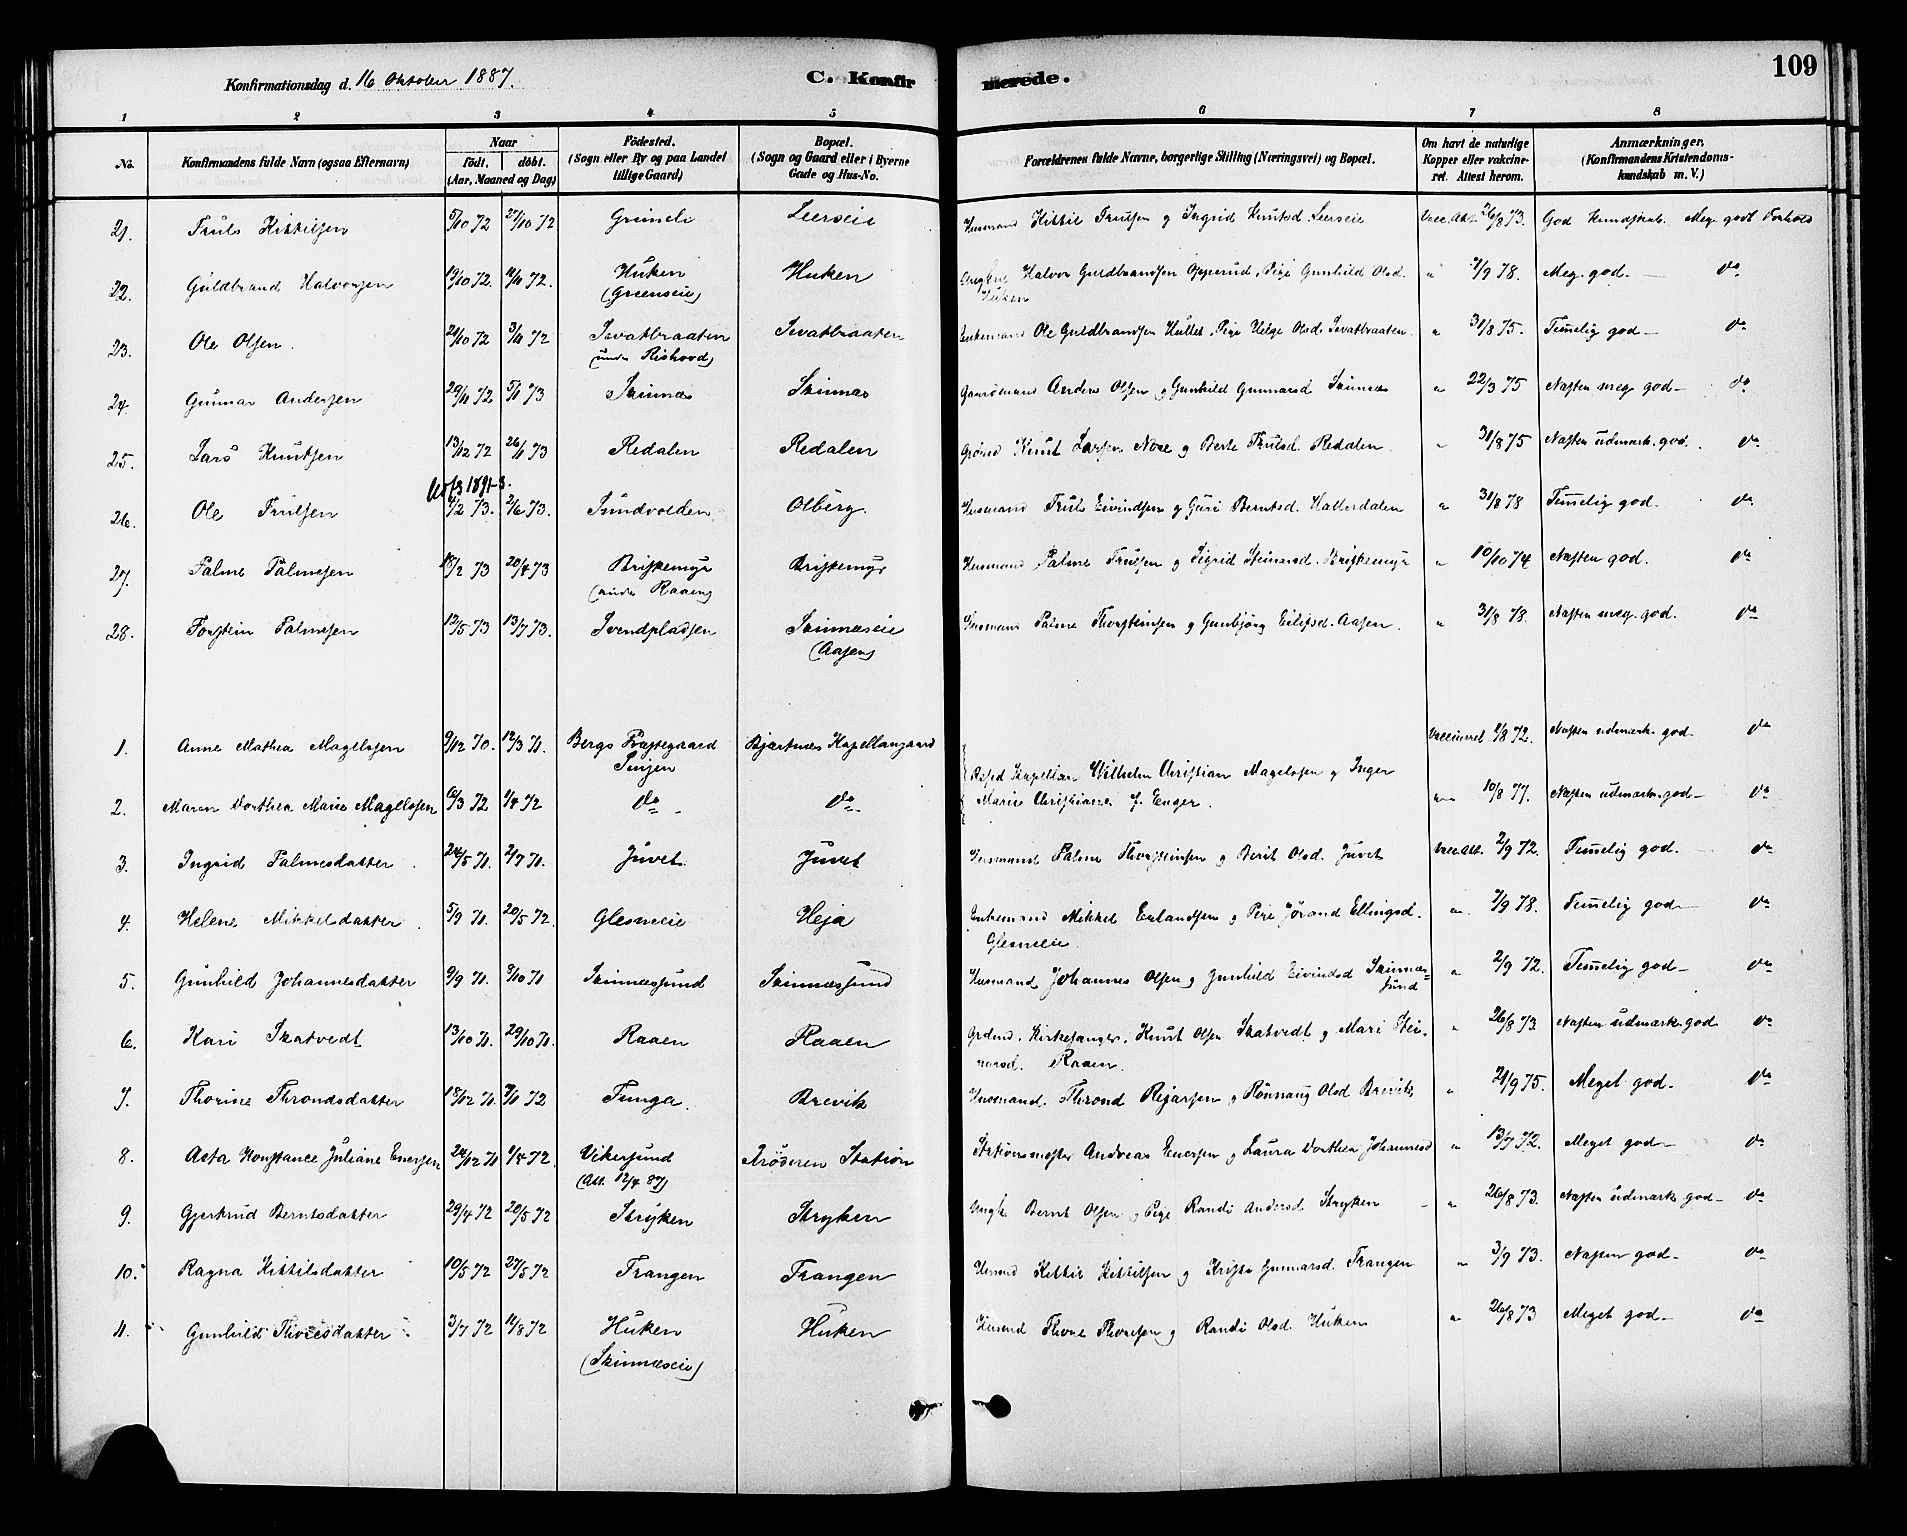 Konfirmationsdag d. 16 Oktober 1887.
C. Konfirmerede.
109
1 2 3 4 5 6 7 8
No.
Konfirmandens fulde Navn (ogsaa Efternavn)
Naar
födt. döbt.
(Aar, Maaned og Dag)
Födested.
(Sogn eller By og paa Landet
tillige Gaard)
Bopæl.
(Sogn og Gaard eller i Byerne
Gade og Hus-No.
Forældrenes fulde Navne, borgerlige Stilling (Næringsvei) og Bopæl.
Om havt de naturlige
Kopper eller vakcine-
ret. Attest herom.
Anmærkninger.
(Konfirmandens Kristendoms-
kundskab m. V.)
21. Truls Kittilsen 5/10 72 27/10 72 Grimeli Leerseie Husmand Kittil Trulsen og Ingrid Knutsd. Leerseie Vacc. Att. 26/8 73. God Kundskab. Meg. godt Forhold
22. Guldbrand Halvorsen 19/10 72. 72. Huken Huken Ungkarl Halvor Guldbrandsen Opperud, Pige Gunhild Olsd. " /9 78. Meg. god. — do
(Greenseie) Huken
23. Ole Olsen. 72 3/11 72 Sevatbraaten Sevatbraaten Enkemand Ole Guldbrandsen Hullet, Pige Helge Olsd. Sevatbraaten. " 31/8 75. Temelig god — do
(under Rishovd)
24. Gunnar Andersen 29/11 72 5/1 73 Skinnes Skinnes Gaardmand Anders Olsen og Gunhild Gunnarsd. Skinnes " 22/3 75 Næsten meg. god — do
25. Lars Knutsen 13/12 72 26/1 73 Redalen Redalen Grdmd Knut Larsen Nore og Berte Trulsd. Redalen. " 31/8 75 Næsten udmærk. god. do
1891
26. Ole Trulsen /2 73. 2/6 73. Sundvolden Olberg. Husmand Truls Eivindsen og Guri Berntsd. Hallerdalen " 31/8 78 Temelig god. do
27. Palme Palmesen /2 73 20/4 73 Briskemyr Briskemyr Husmand Palme Trulsen og Sigrid Steinarsd. Briskemyr " 10/10 74 Næsten god. do
(under Raaen)
28. Torstein Palmesen 12/5 73 13/7 73. Svendpladsen Skinnæseie Husmand Palme Thorsteinsen og Gunbjörg Eilefsd. Aasen. " 31/8 78. Næsten meg. god. do
(Aasen)
1. Anne Mathea Magelssen 9/12 70. 12/3 71. Bergs Præstegaard Bjertnæs Kapellangaard Vaccineret /8 72. Næsten udmærk. god — do
Resid Kapellan Wilhelm Christian Magelssen og Inger
2. Maren Dorthea Marie Magelssen /3 72 1/4 72 do do Marie Christiane f. Enger. 10/8 77. Næsten udmærk. god — do
3. Ingrid Palmesdatter 24/5 71. 2/7 71. Juvet. Juvet Husmand Palme Thorsteinsen og Berit Olsd. Juvet Vacc. Att. 2/9 72. Temelig god. — do
4. Helene Mikkelsdatter 5/9 71. 20/5 72. Glesneeie Heja Enkemand Mikkel Erlandsen og Pige Jörand Ellingsd. " /9 78. Temelig god — do
Glesneeie.
5. Gunhild Johannesdatter 9/9 71. 9/10 71 Skinnæssund Skinnæssund Husmand Johannes Olsen og Gunhild Eivindsd Skinnæs- " 2/9 72. Temelig god — do
sund
6. Kari Skatvedt 13/10 71. 29/10 71. Raaen Raaen Grdmd. Kirkesanger. Knut Olsen Skatvedt og Mari Stei- " 26/8 73. Næsten udmærk. god. do
narsd. Raaen.
7. Thorine Throndsdatter 18/12 71. 72 Tunga. Brevik Husmand. Thrond Reijarsen og Rönnaug Olsd Brevik " 21/9 75. Meget god — do
8. Asta Konstance Juliane Enersen 24/12 71 1/4 72. Vikersund Kröderen Station Stationsmester Andreas Enersen og Laura Dorthea Johannesd " 13/7 72. Meget god — do
(Att. 12/4 87)
9. Gjertrud Berntsdatter 29/4 72 20/5 72 Stryken Stryken Ungk. Bernt Olsen og Pige Randi Andersd. Stryken — " 26/8 73. Næsten udmærk. god — do
10. Ragna Kittilsdatter 10/5 72 27/5 72 Trangen Trangen Husmd Kittil Kittilsen og Kristi Gunnarsd. Trangen " 3/9 73. Næsten god — do
11. Gunhild Thoresdatter 3/7 72 14/8 72 Huken Huken Husmd Thore Thoresen og Randi Olsd. Huken " 26/8 73 Meget god — do
(Skinnæseie)